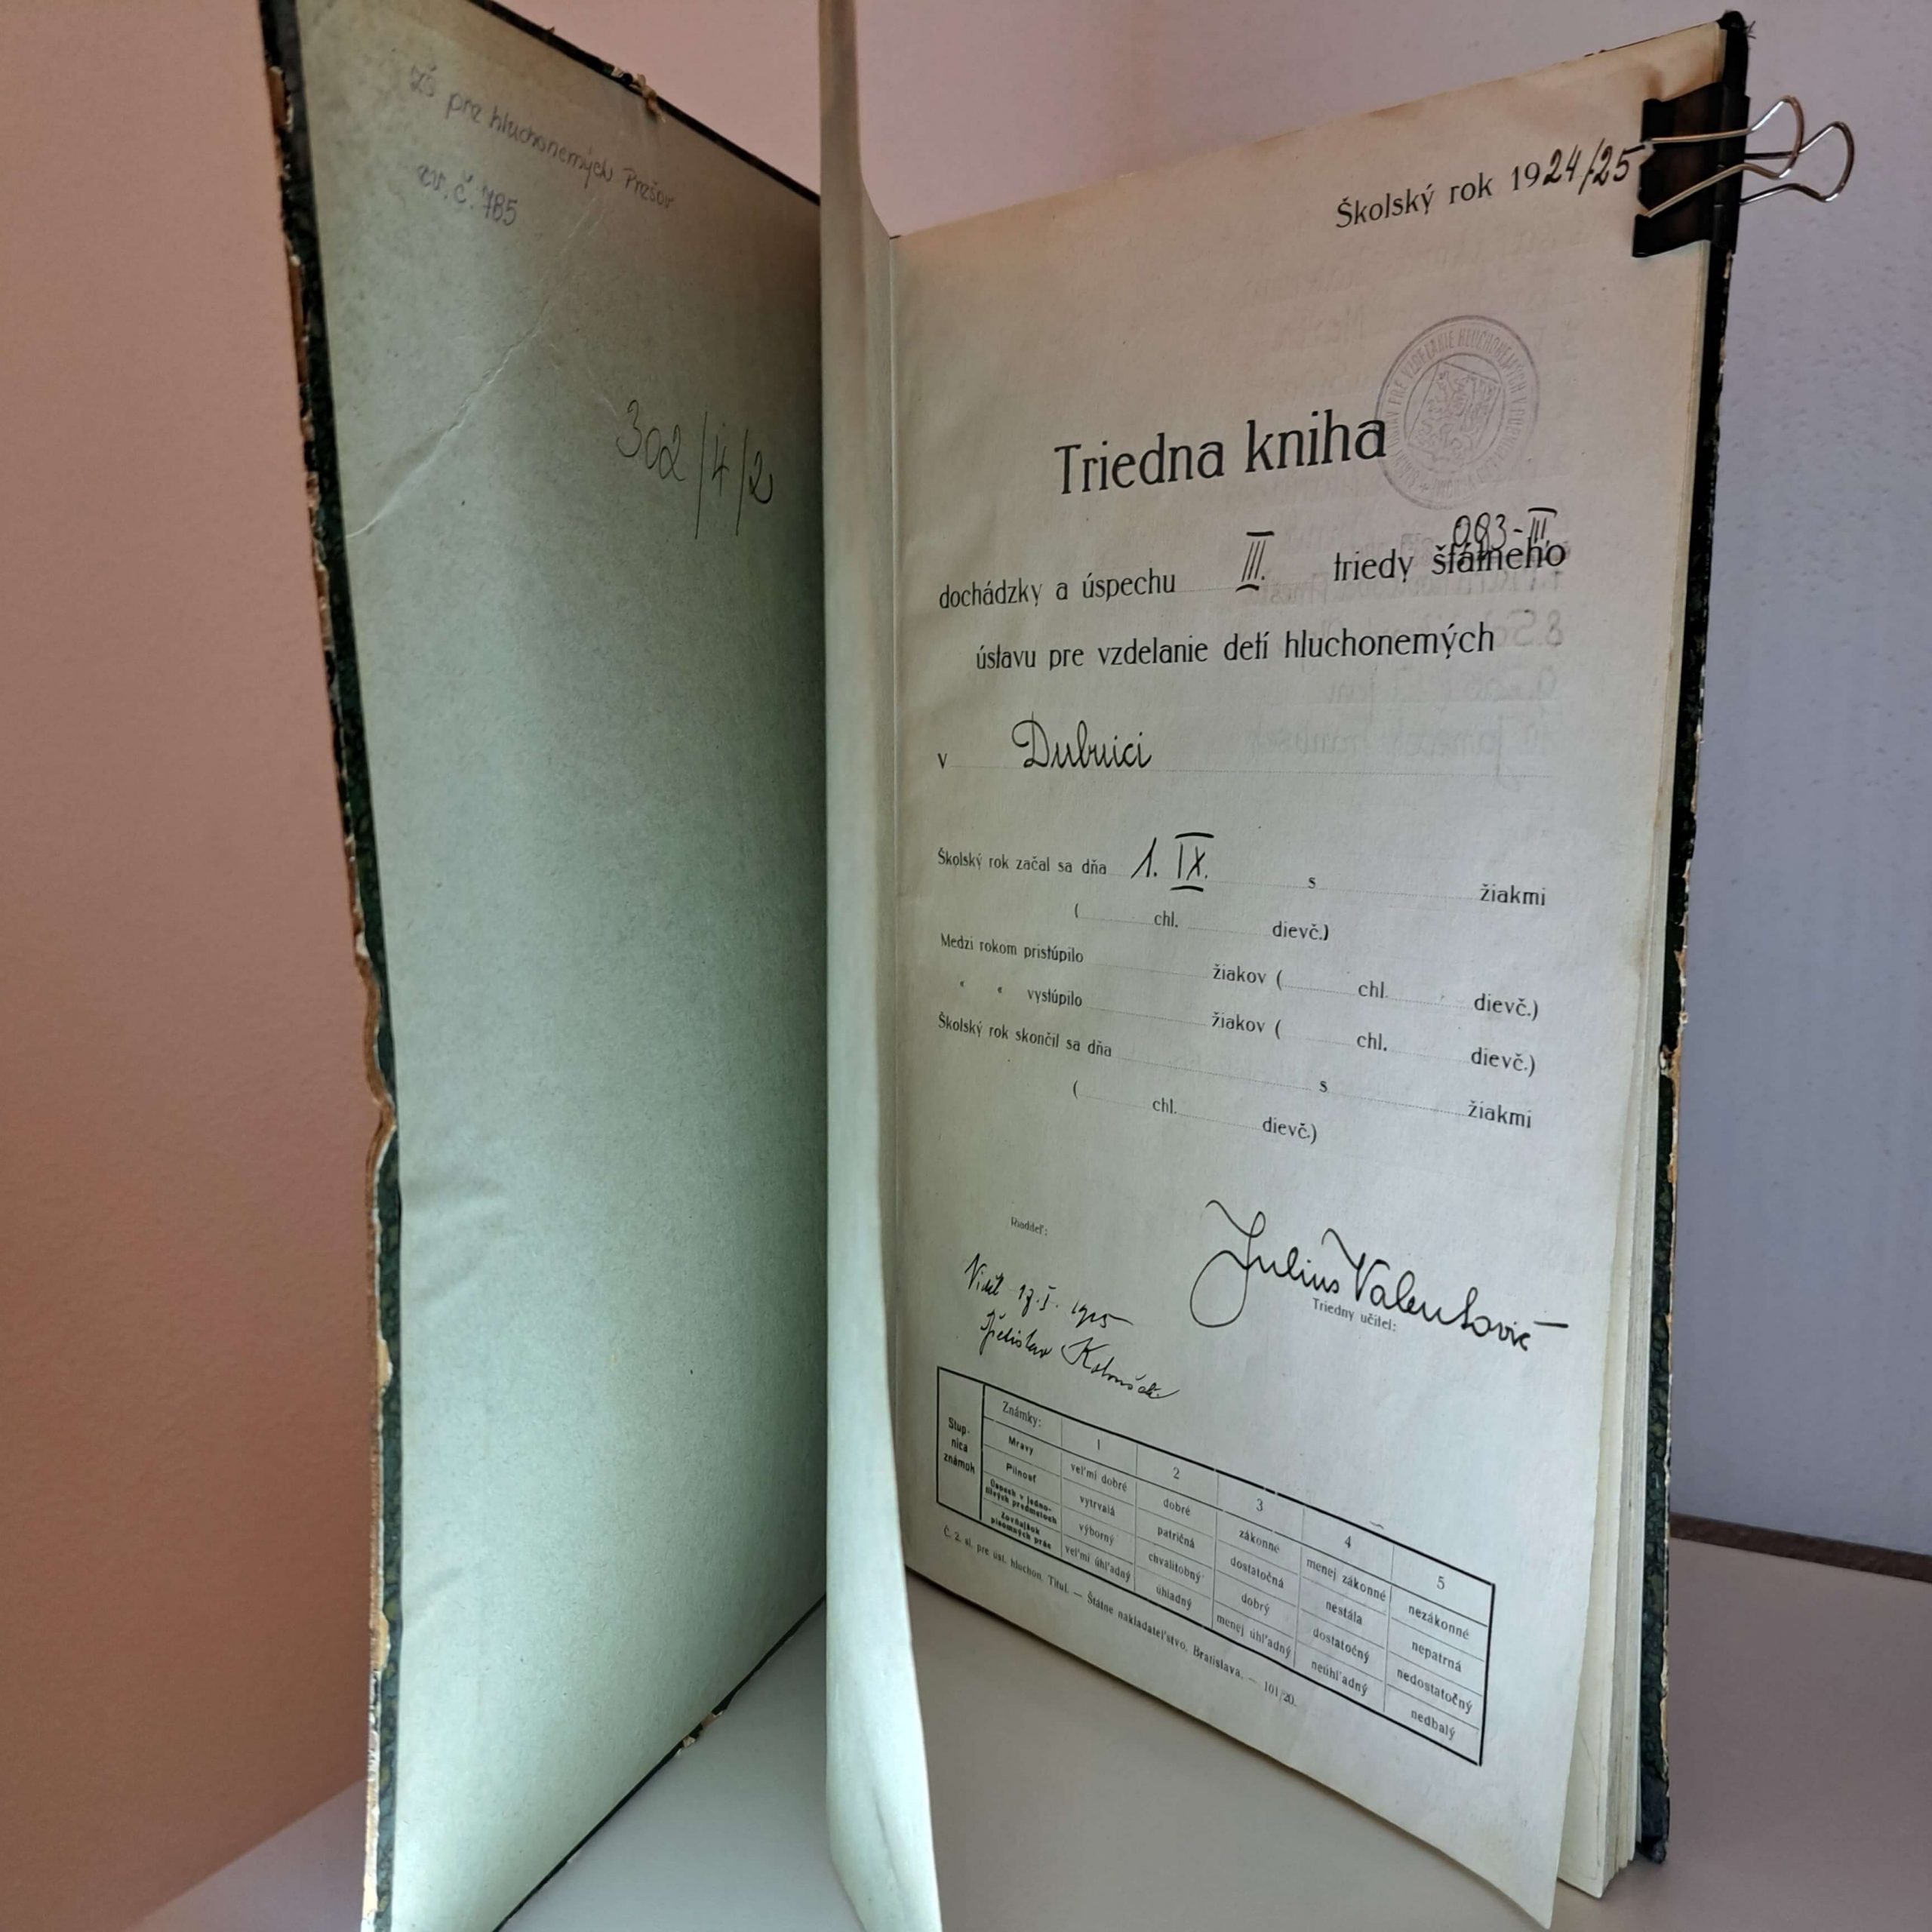 ZŠ pre hluchonemých Prešov
ev. č. 785
302/4/2
Školský rok 1924/25
Triedna kniha
093-III.
dochádzky a úspechu III. triedy štátneho
ústavu pre vzdelanie detí hluchonemých
v Dubnici
Školský rok začal sa dňa 1. IX. s žiakmi
( chl. dievč.)
Medzi rokom pristúpilo žiakov ( chl. dievč.)
" " vystúpilo žiakov ( chl. dievč.)
Školský rok skončil sa dňa s žiakmi
( chl. dievč.)
Riaditeľ:
Julius Valentovič
Triedny učiteľ:
Viděl 17. I. 1925
Stupnica známok
Známky: 1 2 3 4 5
Mravy veľmi dobré dobré zákonné menej zákonné nezákonné
Pilnosť vytrvalá patričná dostatočná nestála nepatrná
Osnech v jednotlivých predmetoch výborný chvalitobný dobrý dostatočný nedostatočný
Zovňajšok písomných prác veľmi úhľadný úhladný menej úhľadný neúhľadný nedbalý
Č. 2. sl. pre úst. hluchon. Titul. — Štátne nakladateľstvo, Bratislava. — 101/20.